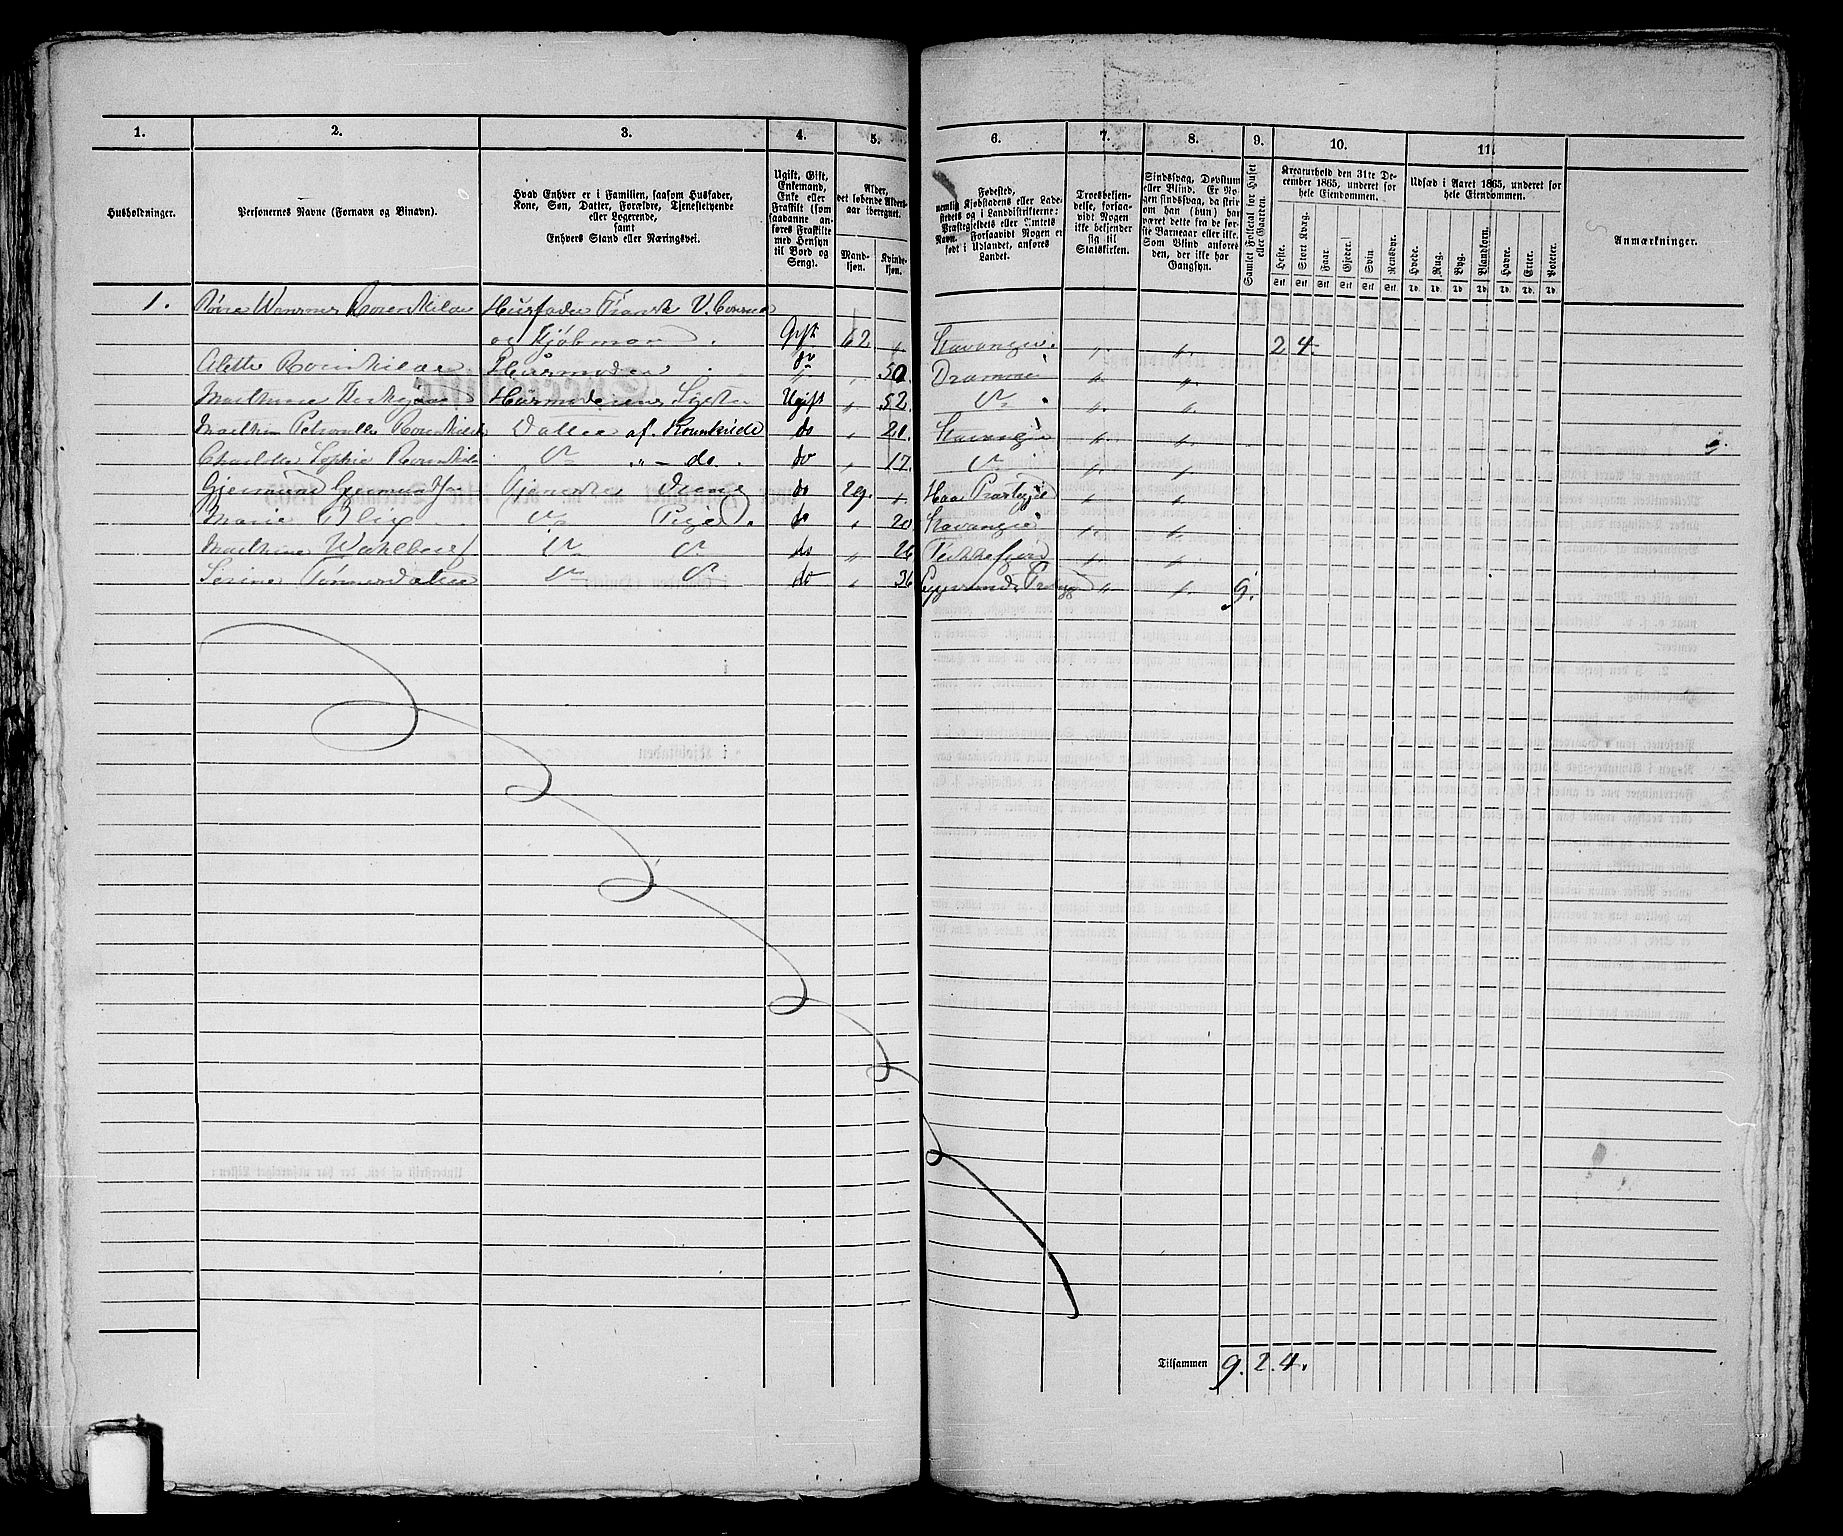 1. 2. 3. 4. 5. 6. 7. 8. 9. 10. 11.
Husholdninger.
Personernes Navne (Fornavn og Binavn).
Hvad Enhver er i Familien, saasom Husfader,
Kone, Søn, Datter, Forældre, Tjenestetyende
eller Logerende,
samt
Enhvers Stand eller Næringsvei.
Ugift, Gift,
Enkemand,
Enke eller
Fraskilt (som
saadanne an-
føres Fraskilte
med Hensyn
til Bord og
Seng).
Alder,
det løbende Alders-
aar iberegnet.
Mand-
kjøn.
Kvinde-
kjøn.
Fødested,
nemlig Kjøbstadens eller Lade-
stedets og i Landdistrikterne:
Præstegjeldets eller Amtets
Navn. Forsaavidt Nogen er
født i Udlandet, anføres
Landet.
Troesbekjen-
delse, forsaa-
vidt Nogen
ikke bekjender
sig til
Statskirken.
Sindssvag, Døvstum
eller Blind. Er No-
gen sindssvag, da skri-
ves om han (hun) har
været dette fra de før-
ste Barneaar eller ikke.
Som Blind anføres
den, der ikke har
Gangsyn.
Samlet Folketal for Huset
eller Gaarden.
Kreaturhold den 31te De-
cember 1865, underet for
hele Eiendommen.
Heste. Stort Kvæg. Faar. Gjeder. Svin Rensdyr.
Stk Stk. Stk Stk Stk Stk.
Udsæd i Aaret 1865, underet for
hele Eiendommen.
Hvede. Rug. Byg. Blandkorn. Havre. Erter. Poteter.
Td. Td. Td. Td. Td. Td. Td.
Anmærkninger.
1. Husfader
og Kjøbmand Gift 62 „ Stavanger. „ „ 2 4.
Husmoder do „ 50 Drammen „ „
Husmoderens Søster Ugift „ 52. do „ „
Datter af Rosenkilde do „ 20. Stavanger „ „
Charlotte Sophie Rosenkilde do „ do. do „ 17. do „ „
Tjeneste Dreng do 29. „ Haa Præstegjeld „ „
Marie do Pige do „ 20 Stavanger „ „
Wahlberg do do do „ 26 Flekkefjord „ „
Serine do do do „ 36 „ „ 9.
Tilsammen 9. 2. 4.